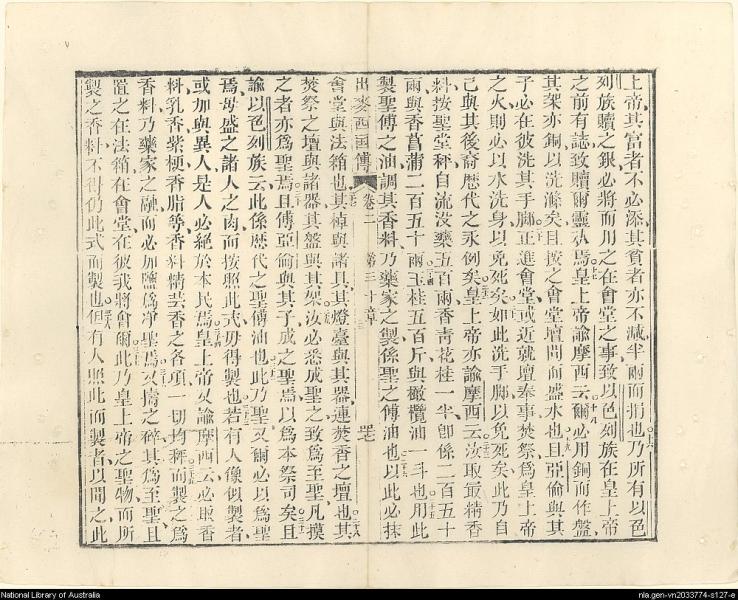 上帝其富者不必添其貧者亦不減半兩而捐也乃所有以色
列族贖之銀必將而用之在會堂之事致以色列族在皇上帝
之前有誌致贖爾靈焉皇上帝諭摩西云爾必用銅而作盤
其架亦銅以洗滌矣且按之會堂壇間而盛水也且亞倫與其
子必在彼洗其手脚正進會堂或近就壇奉事焚祭爲皇上帝
之火則必以水洗身以免死矣如此洗手脚以免死矣此乃自
己與其後裔歷代之永例矣皇上帝亦諭摩西云汝取最精香
料按聖堂秤自流没藥五百兩香青花桂一半即係二百五十
兩與香菖蒲二百五十兩玉桂五百斤與橄欖油一斗也用此
製聖傅之油調其香料乃藥家之製係聖之傅油也以此必抹
出麥西國傳 卷二 第三十章
會堂與法箱也其棹與諸具其燈臺與其器連焚香之壇也其
焚祭之壇與諸器其盤與其架汝必悉成聖之致爲至聖凡摸
之者亦爲聖焉且傅亞倫與其子成之聖焉以爲本祭司矣且
諭以色列族云此係歷代之聖傅油也此乃聖又爾必以爲聖
焉毋盛之諸人之肉而按照此式毋得製也若有人像似製者
或加與異人是人必絕於本民焉皇上帝又諭摩西云必取香
料乳香柴梗香脂等香料精芸香之各項一切均秤而製之爲
香料乃藥家之融而必加鹽爲净聖焉又擣之碎其爲至聖且
置之在法箱在會堂在彼我將會爾此乃皇上帝之聖物而所
製之香料不得仍此式而製也但有人照此而製者以聞之此
National Library of Australia
nla.gen-vn2033774-s127-e